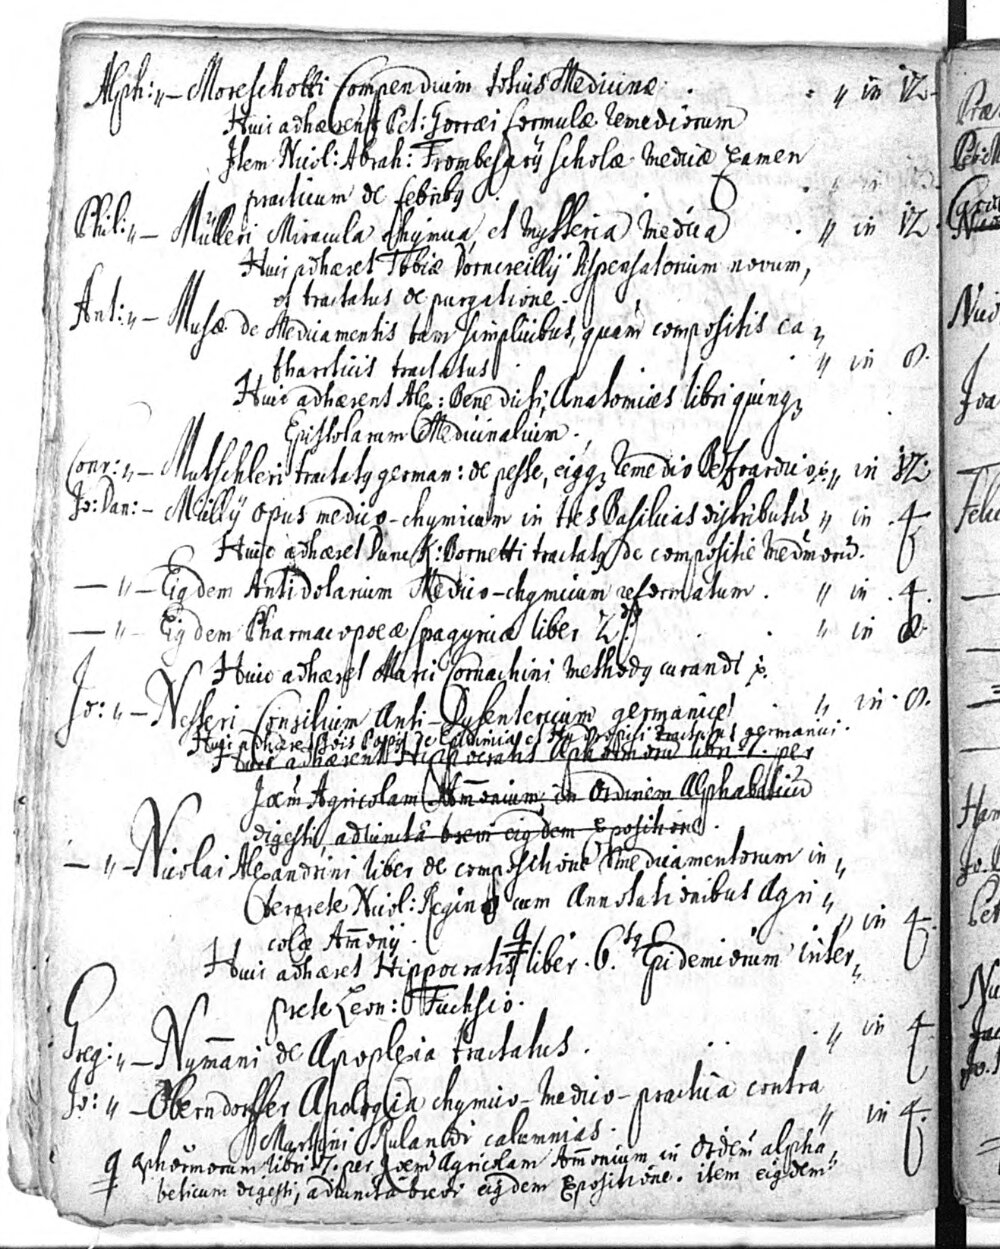 Alph: „ — Moreschotti Compendium totius Medicinæ . . „ in 12.
Huic adhærent Pet: Gorræi formulæ remediorum
Item Nicol: Abrah: Frambesarij scholæ medicæ examen
practicum de febribg. . „ in 12.
Phil: „ — Mülleri Miracula chymica, et mysteria medica . „ in 12.
Huic adhæret Tobiæ Dorncreillij Dispensatorium novum,
et tractatus de purgatione.
Ant: „ — Musæ de Medicamentis tam simplicibus, quàm compositis ca„
tharticis tractatus . . „ in 8.
Huic adhærent Alex: Benedicti, Anatomices libri quinq3
Epistolarum Medicinalium .
Conr: „ — Mutschleri tractatg german: de peste, eigq3 remedio Bezoardico p. „ in 12.
Jo: Dan: — Müllij opus medico-chymicum in tres Basilicas distributum „ in . 4
Huic adhæret Dunc: Bornetti tractatg de compositiõe medm̄orũ.
— „ — Eigdem Antidotarium Medico-chymicum reformatum . „ in . 4.
— „ — Eigdem Pharmacopoeæ spagyricæ liber 2dg . . „ in 8.
Huic adhæret Marci Cornachini methodg curandi p.
Jo: „ — Nesseri Consilium Anti-Dysentericum germanicè . „ in 8.
Huic adhæret Jois Popij de Epidimia et Hydropisi tractatus germanici.
Huic adhærent Hippocratis Aphorismorũ libri 7. per
Joēm Agricolam Am̄onium in Ordinem Alphabeticũ
digesti, adiuncta brevi eigdem Expositione .
— „ — Nicolai Alexandrini liber de compositione medicamentorum in„
terprete Nicol: Regino cum Annotationibus Agri„
colæ Am̄onij . „ in 4.
Huic adhæret Hippocratis liber . 6.tg Epidemiorum inter„
prete Leon: Fuchsio.
Greg: „ — Nym̄ani de Apoplexia tractatus . . . „ in 4
Jo: „ — Oberndorffer Apologia chymico-medico-practica contra
Martini Rulandi calumnias . „ in 4.
aphorismorum libri 7. per Joēm Agricolam Am̄onium in Ordinem alpha„
beticum digesti, adiuncta brevi eigdem Expositione. item eigdem